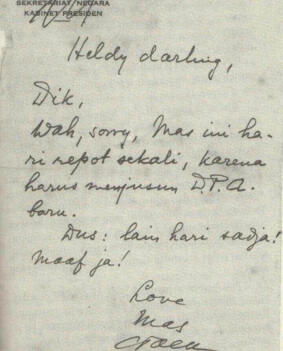 SEKRETARIAT NEGARA
KABINET PRESIDEN
Heldy darling,
Dik,
Wah, sorry, Mas ini ha-
ri repot sekali, karena
harus menjusun D.P.A.
baru.
Dus: lain hari sadja!
Maaf ja!
Love
Mas